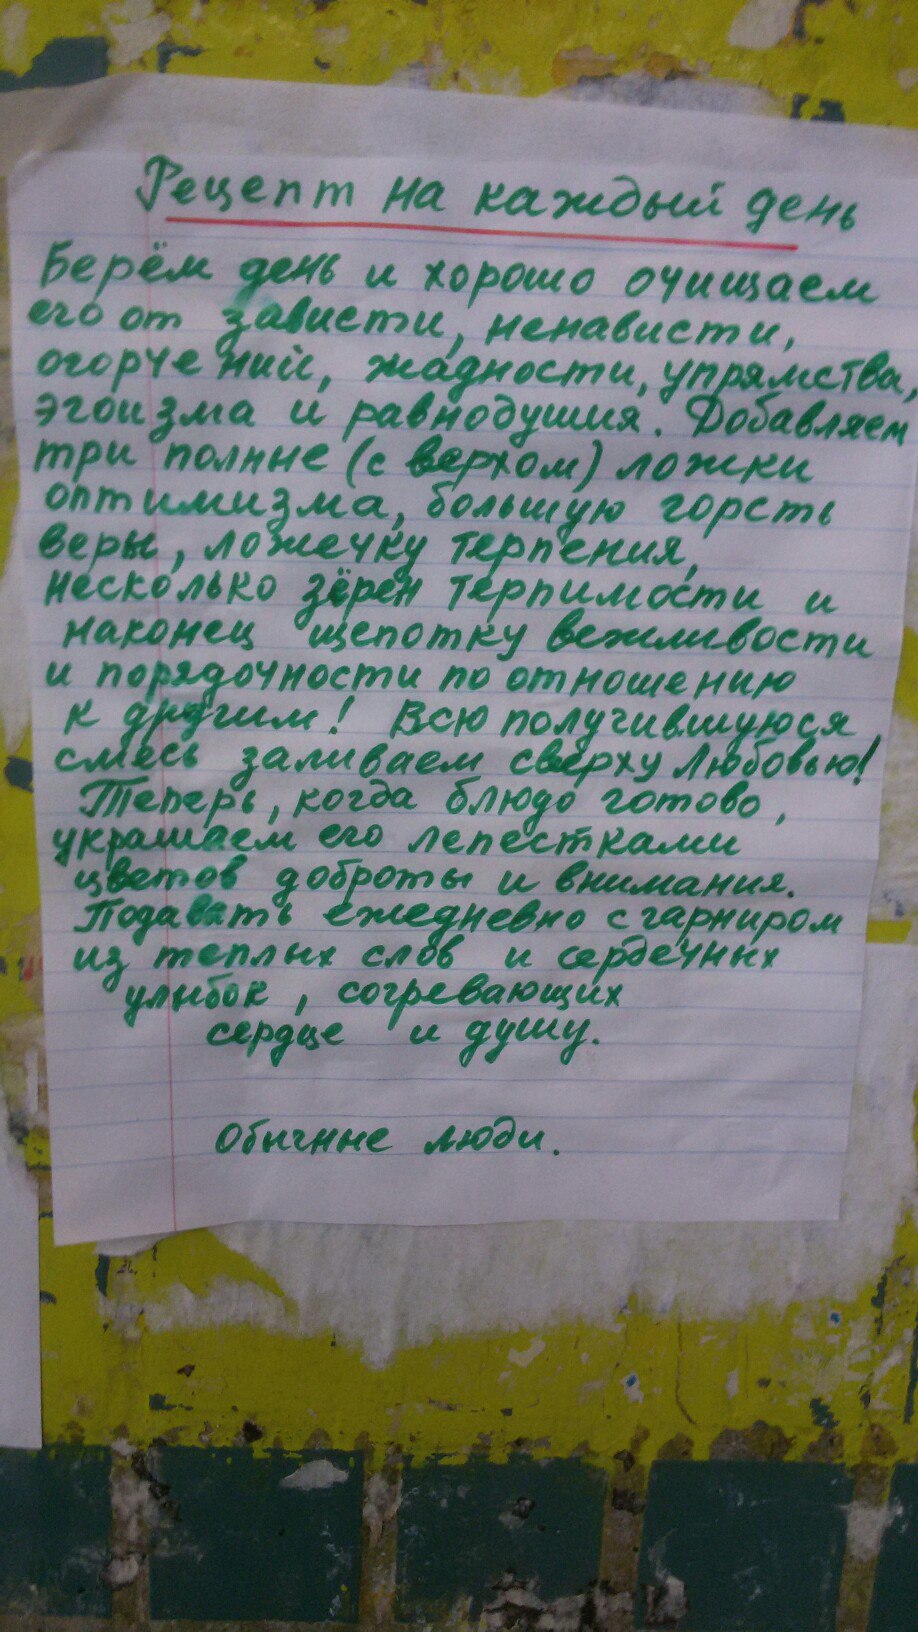 Рецепт на каждый день
Берём день и хорошо очищаем
его от зависти, ненависти,
огорчений, жадности, упрямства,
эгоизма и равнодушия. Добавляем
три полные (с верхом) ложки
оптимизма, большую горсть
веры, ложечку терпения,
несколько зёрен терпимости и
наконец щепотку вежливости
и порядочности по отношению
к другим! Всю получившуюся
смесь заливаем сверху Любовью!
Теперь, когда блюдо готово,
украшаем его лепестками
цветов доброты и внимания.
Подавать ежедневно с гарниром
из теплых слов и сердечных
улыбок, согревающих
сердце и душу.
Обычные люди.